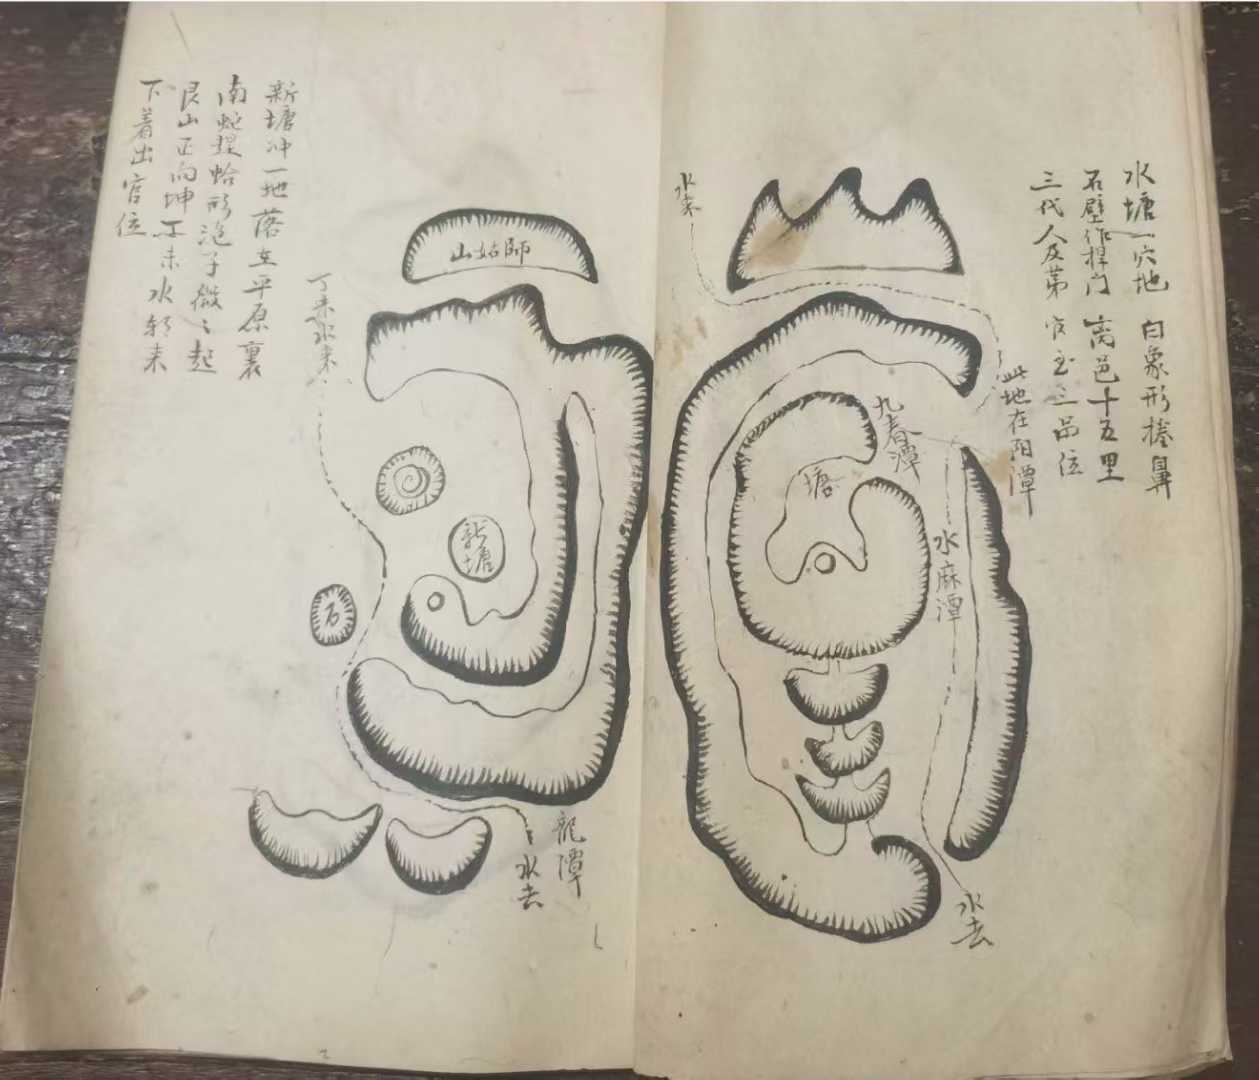 水塘一穴地 白象形捲鼻
石壁作捍门 离邑十五里
三代人及第 官至三品位
水来
此地在阳潭
九春潭
塘
水麻潭
水去
新塘冲一地落在平原裏
南蛇捏蛤形泡子微々起
艮山正向坤 丁未水朝来
下着出官位
山姑師
丁未水来
新塘
石
龍潭
水去